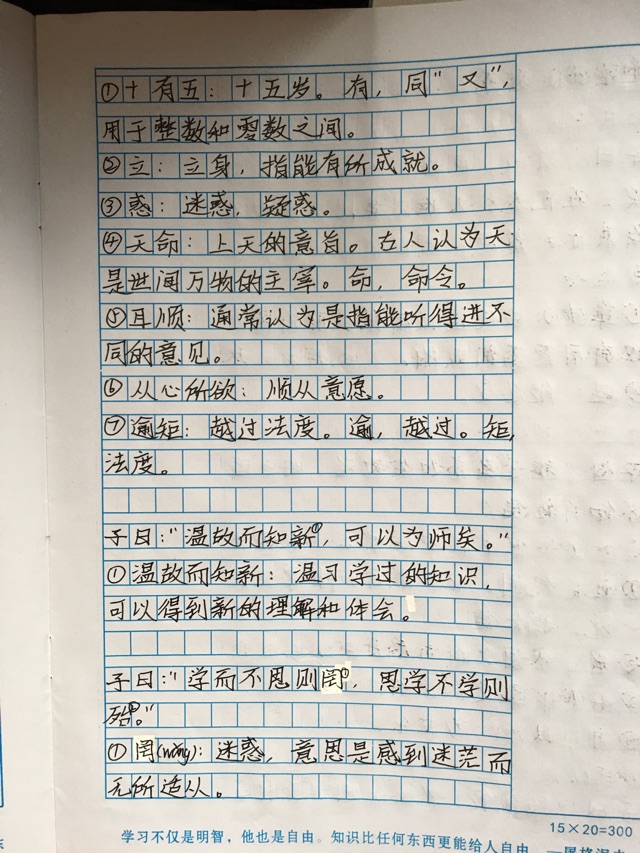 ①十有五：十五岁。有，同“又”，
用于整数和零数之间。
②立：立身，指能有所成就。
③惑：迷惑，疑惑。
④天命：上天的意旨。古人认为天
是世间万物的主宰。命，命令。
⑤耳顺：通常认为是指能听得进不
同的意见。
⑥从心所欲：顺从意愿。
⑦逾矩：越过法度。逾，越过。矩，
法度。
子曰：“温故而知新①，可以为师矣。”
①温故而知新：温习学过的知识，
可以得到新的理解和体会。
子曰：“学而不思则罔①，思学不学则
殆②。”
①罔(wǎng)：迷惑，意思是感到迷茫而
无所适从。
15×20=300
学习不仅是明智，他也是自由。知识比任何东西更能给人自由